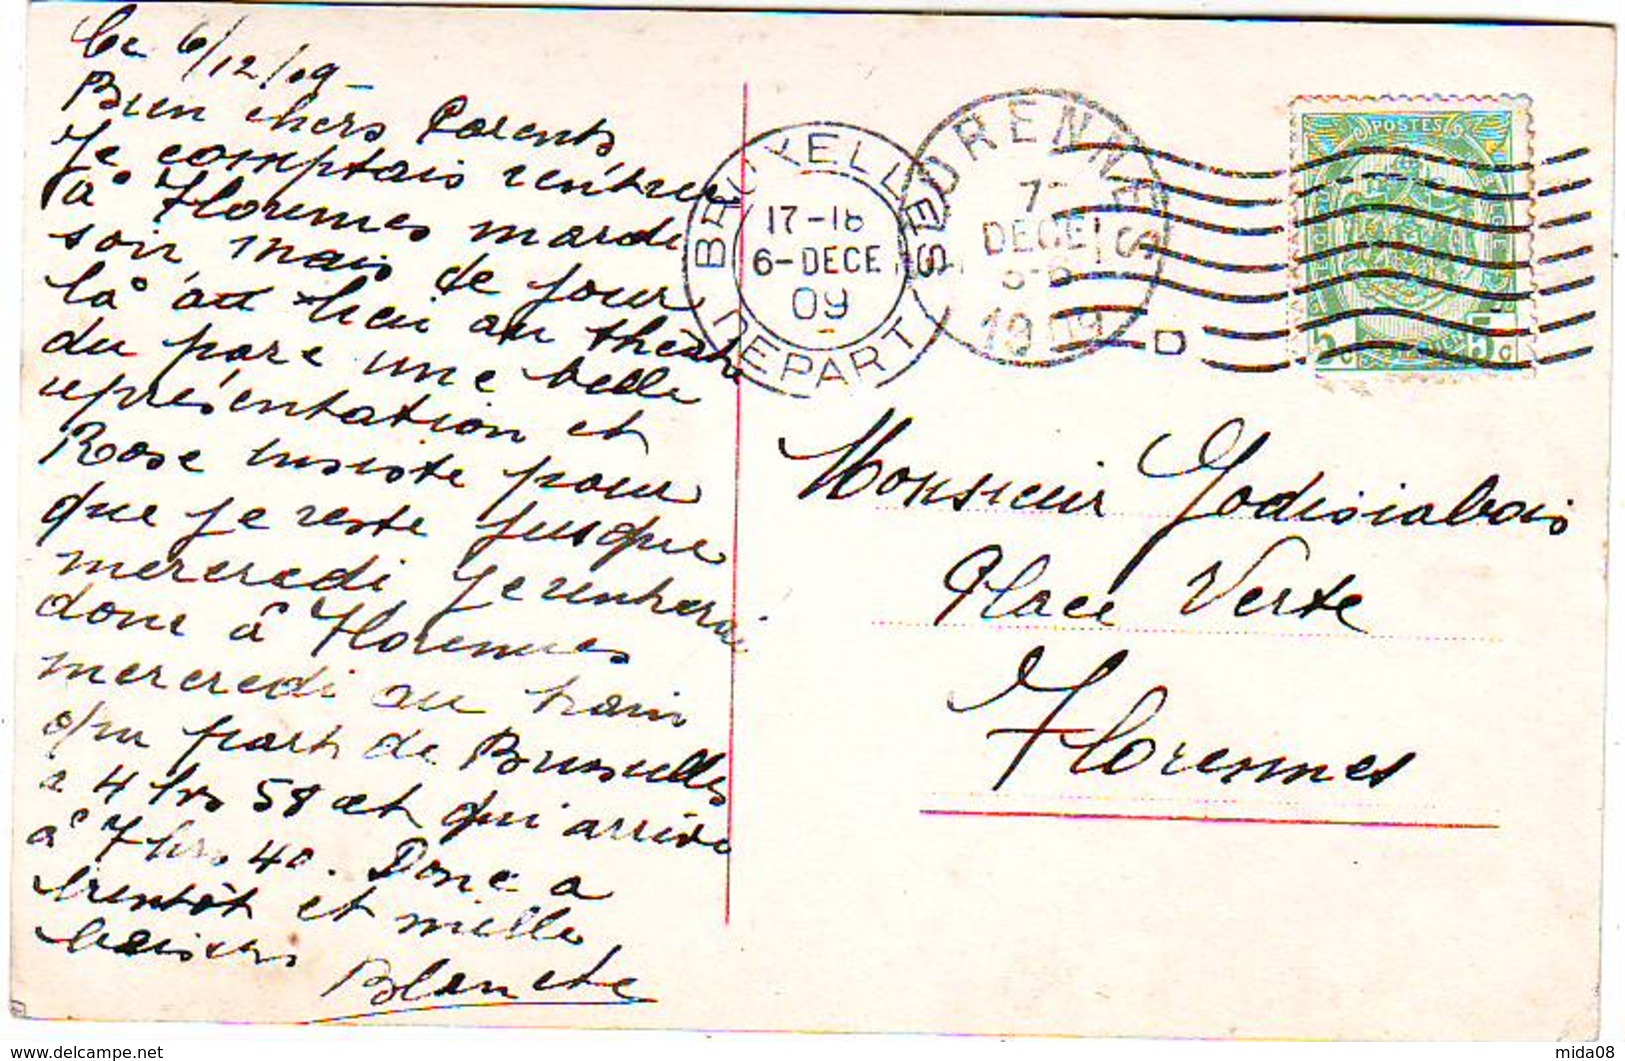 Ce 6/12/09-
Bien chers Parents
Je comptais rentrer
à Florennes mardi
soir mais ce jour
là a lieu au théâtre
du parc une belle
représentation et
Rose insiste pour
que je reste jusque
mercredi je rentrerai
donc à Florennes
mercredi au train
qui part de Bruxelles
à 4 hrs 58 et qui arrive
à 7 hrs 40. Donc a
bientôt et mille
baisers
Blanche
BRUXELLES
17-18
6-DECE
09
DEPART
FLORENNES
7
DECE
1909
POSTES
5c 5c
Monsieur
Place Verte
Florennes
delcampe.net
mida08